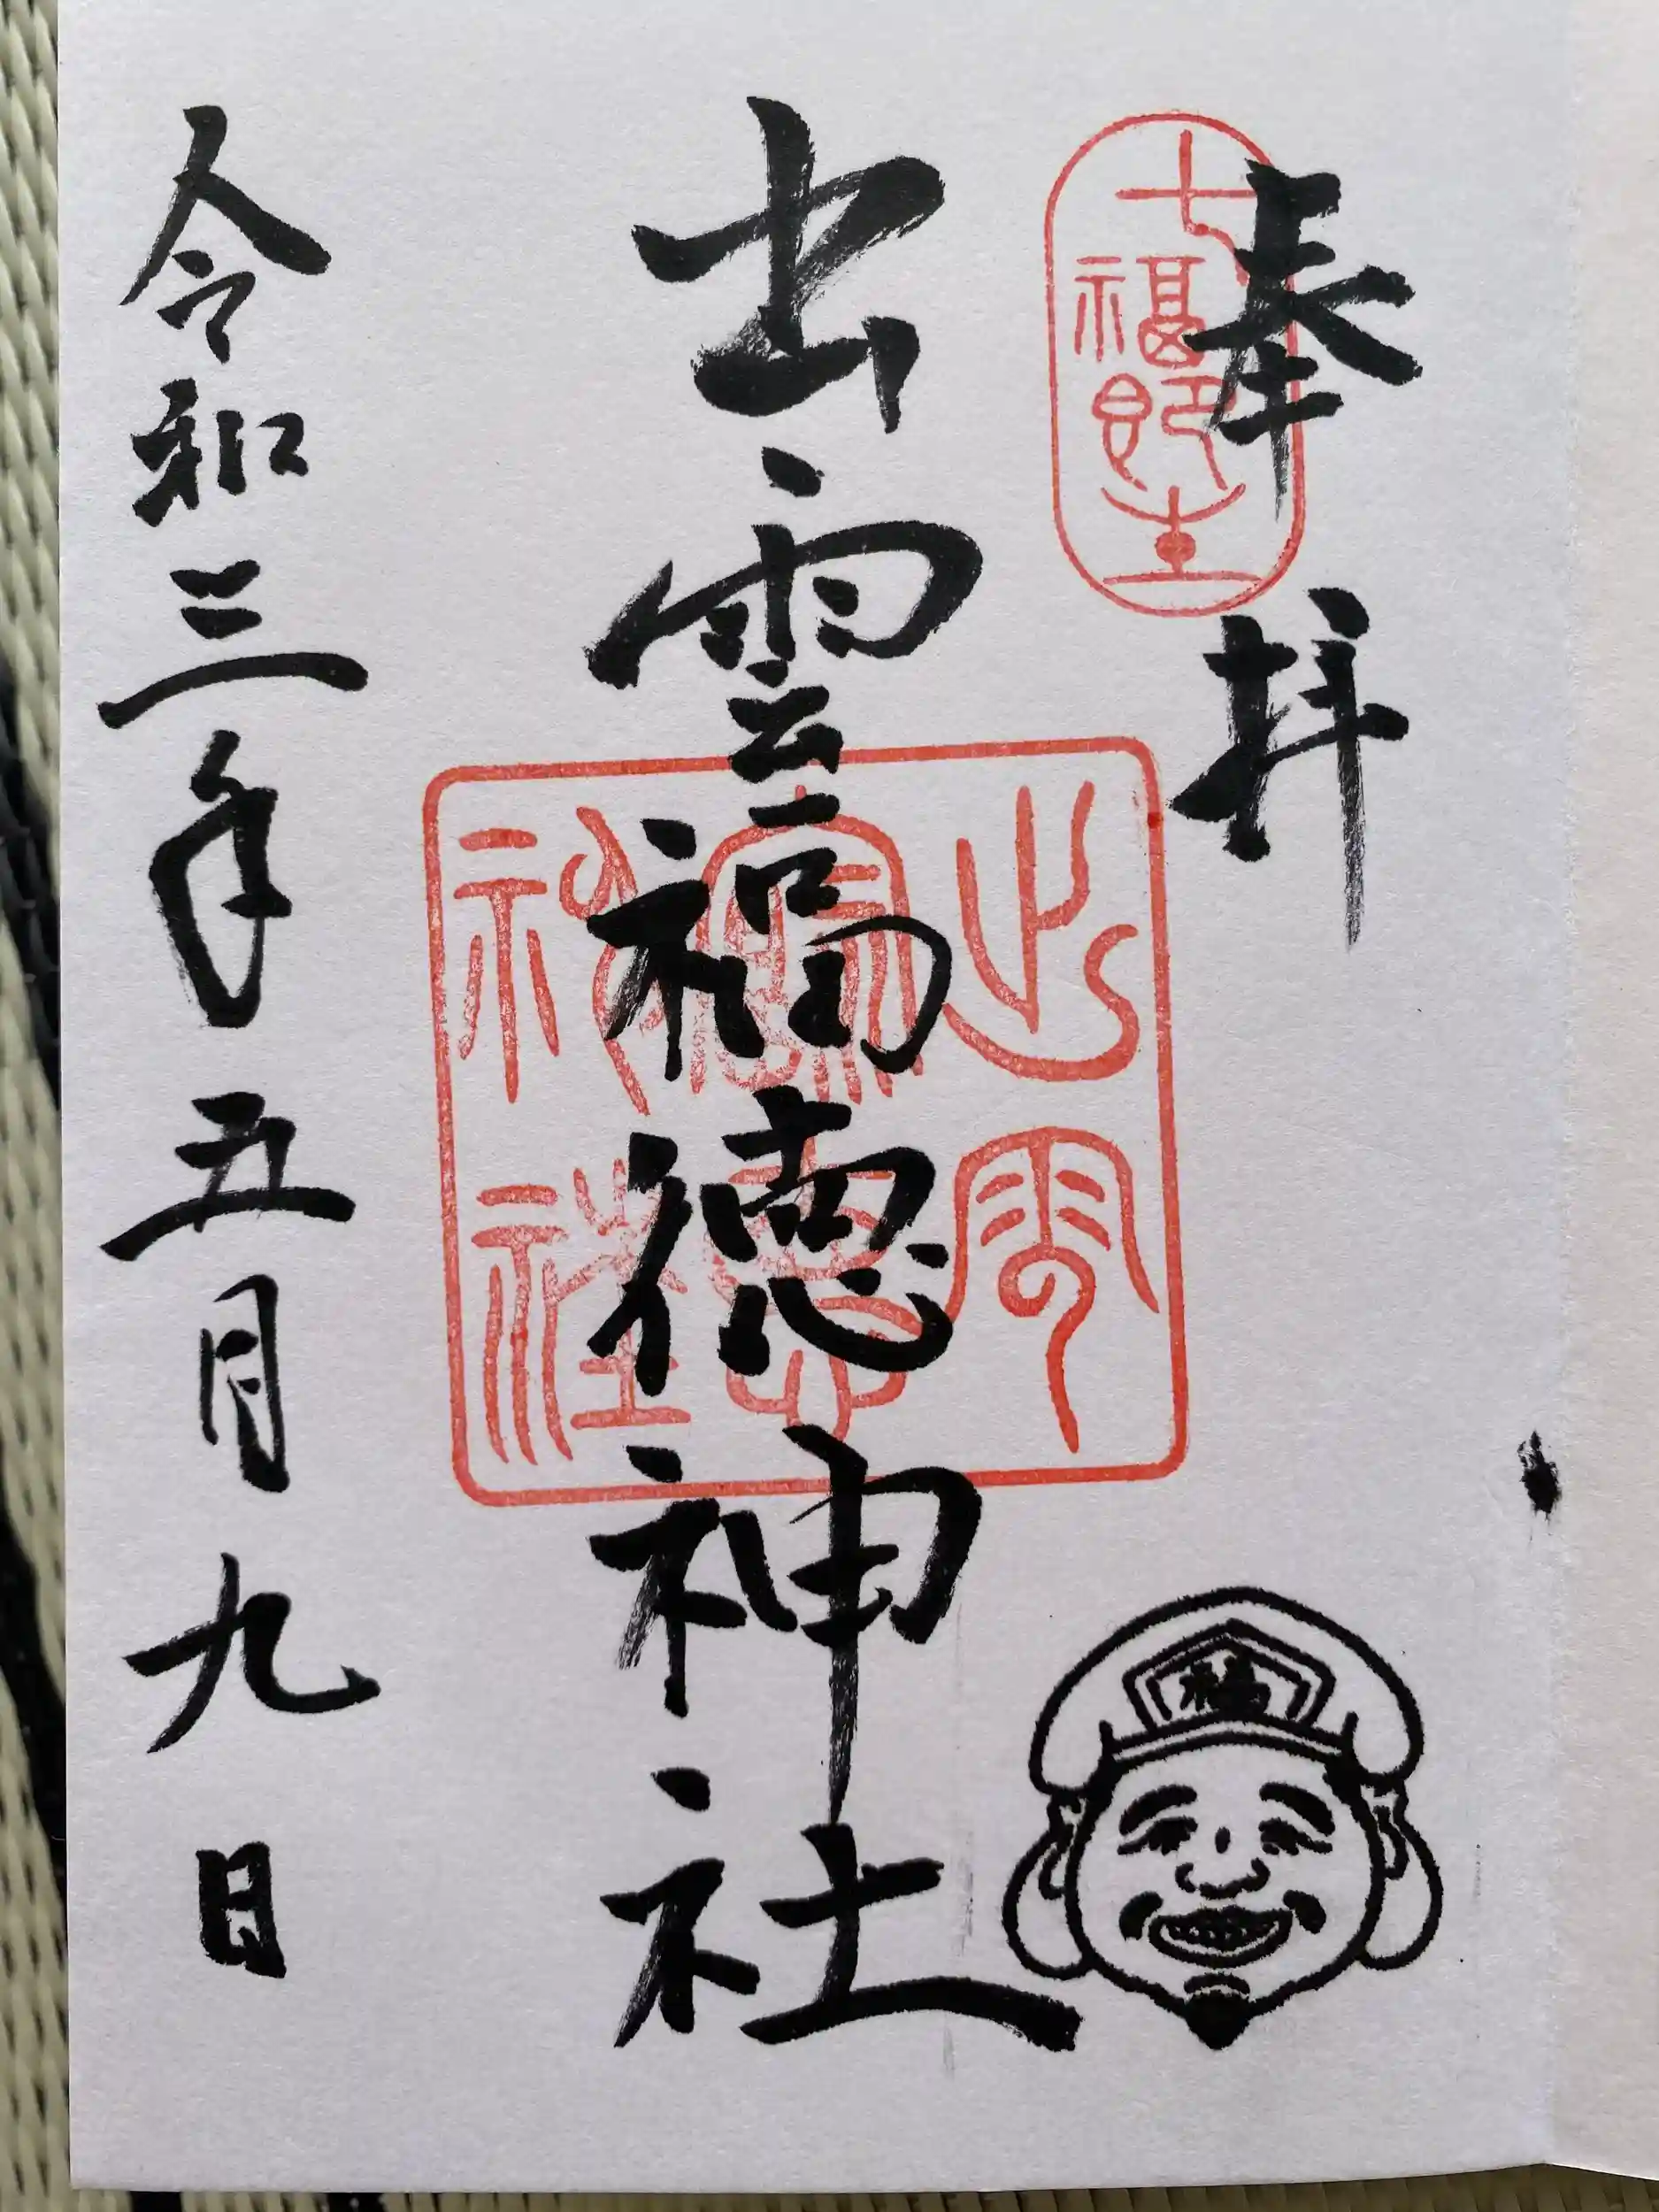 奉拝
七福即生
出雲福徳神社
出雲福徳神社
福
令和三年五月九日